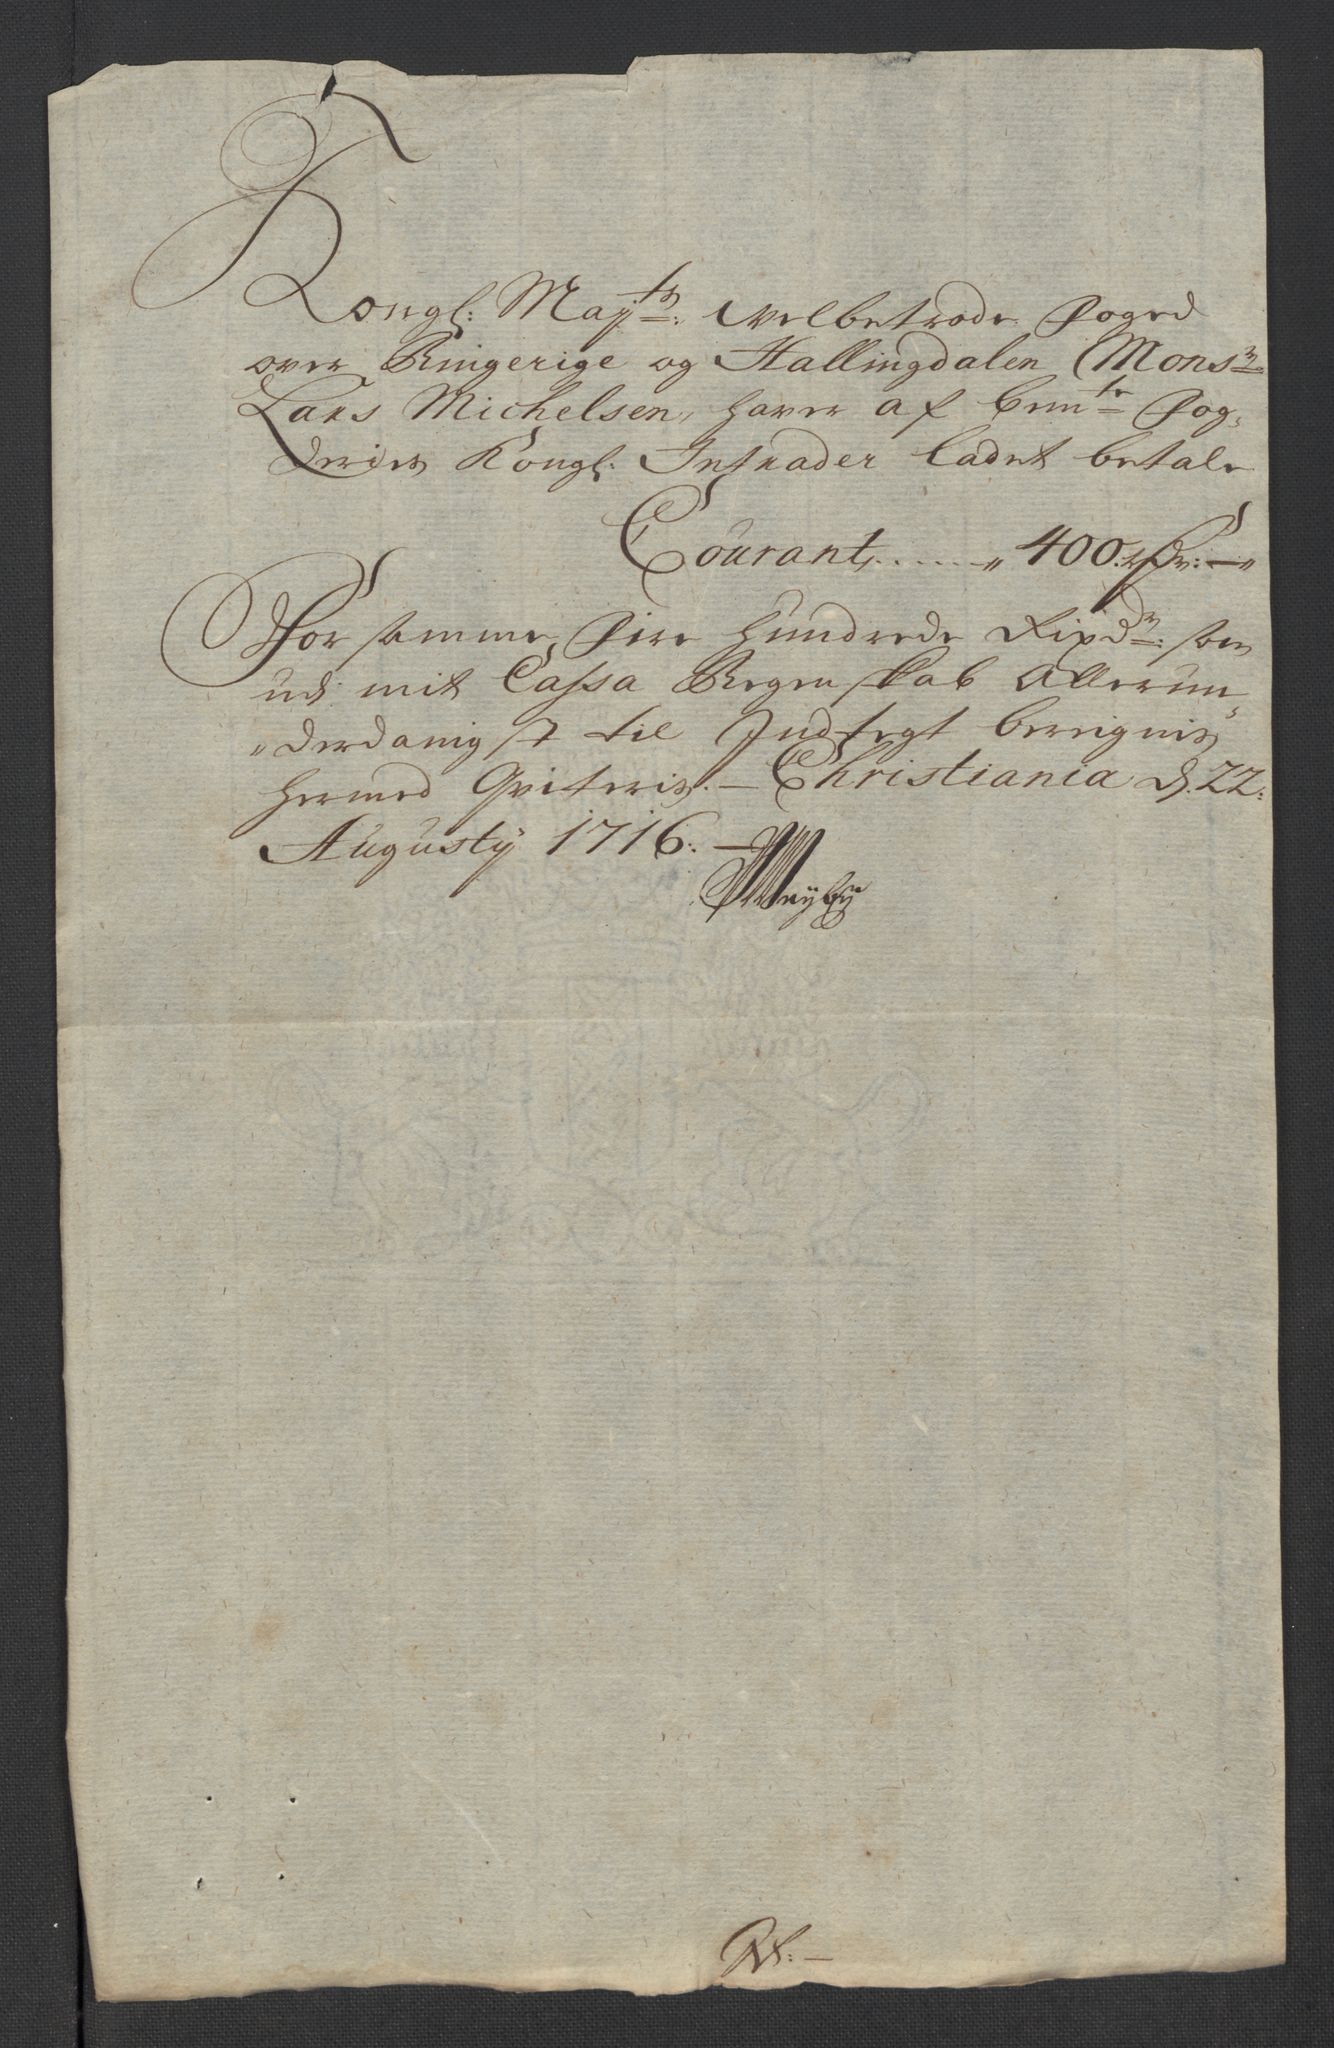 Kongl: Mayts: Velbetrode Foged
over Ringerige og Hallingdalen Monsr
Lars Michelsen, hawer af bemte Fog„
deries Kongl: Intrader ladet betale
Courant ..... „ 400. rdr: — „
For samme Fire Hundrede Rixdr: som
ud mit Cassa Regenskab Allerun„
„derdanigst til Indtegt bereignis
hermed Qviteris. — Christiania d. 22:
Augusty 1716. —